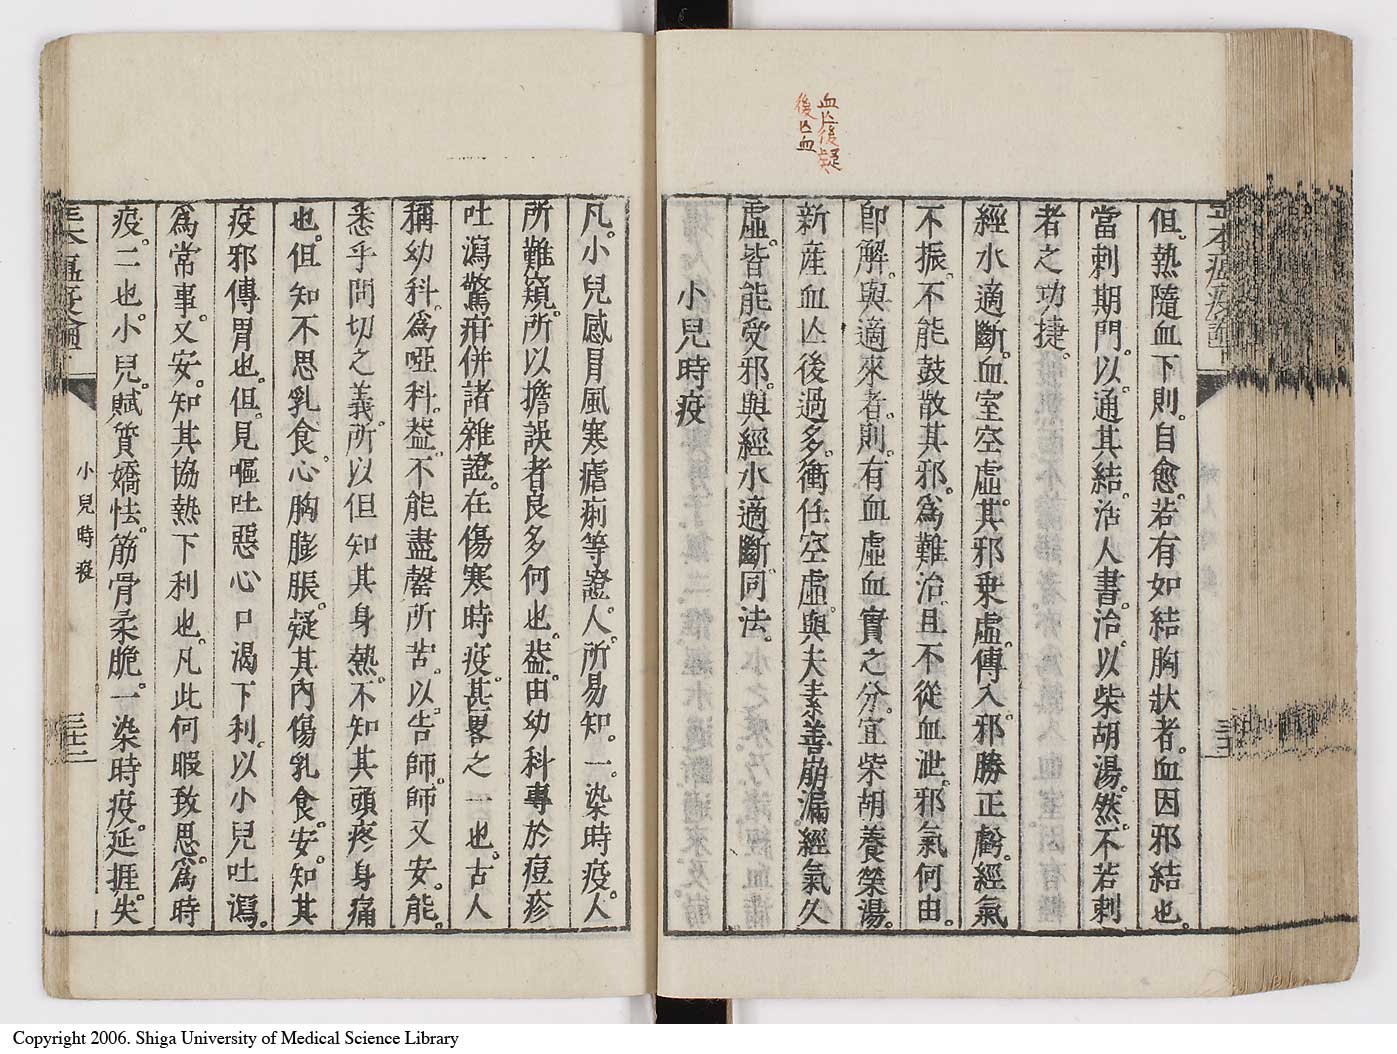 血亾後疑
後亾血
但。熱隨血下則。自愈。若有如結胸狀者。血因邪結也。
當刺期門。以。通其結。活人書。治。以柴胡湯。然。不若刺
者之功捷。
經水適斷。血室空虛。其邪乗虛。傳入。邪勝正虧。經氣
不振。不能鼓散其邪。爲難治且不從血泄。邪氣何由。
卽解。與適來者。則。有血虛血實之分。宜柴胡養榮湯。
新産血亾後過多。衝任空虛。與夫素善崩漏。經氣久
虛。皆能受邪。與經水適斷。同法。
小兒時疫
凡。小兒感冒風寒瘧痢等證。人。所易知。一。染時疫。人
所難窺。所以擔誤者良多何也。葢。由幼科專於痘疹
吐瀉驚疳併諸雜證。在傷寒時疫。甚畧之一也。古人
稱幼科。爲啞科。葢。不能盡罄所苦。以。告師。師又安。能。
悉乎問切之義。所以但知其身熱。不知其頭疼身痛
也。但知不思乳食。心胸膨脹。疑其內傷乳食。安。知其
疫邪傳胃也。但。見嘔吐惡心口渴下利。以小兒吐瀉。
爲常事。又安。知其協熱下利也。凡此何暇致思。爲時
疫。二也。小兒。賦質嬌怯。筋骨柔脆。一染時疫。延捱。失
小兒時疫